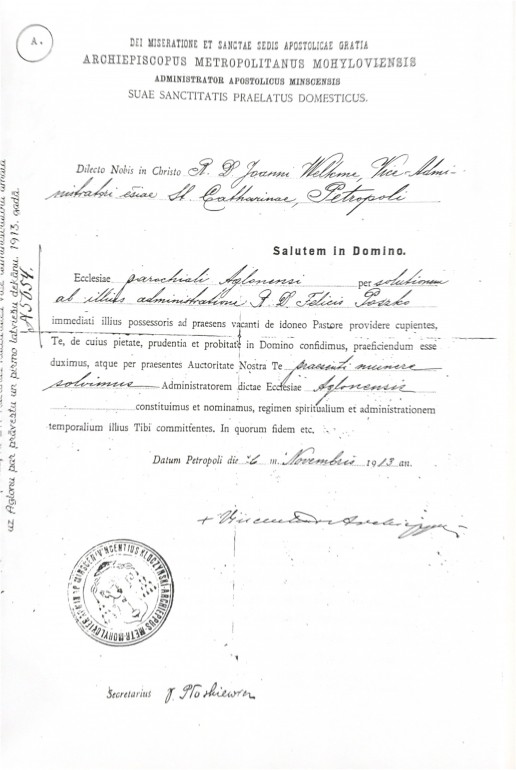 A.
DEI MISERATIONE ET SANCTAE SEDIS APOSTOLICAE GRATIA
ARCHIEPISCOPUS METROPOLITANUS MOHYLOVIENSIS
ADMINISTRATOR APOSTOLICUS MINSCENSIS
SUAE SANCTITATIS PRAELATUS DOMESTICUS.
Dilecto Nobis in Christo R. D. Joanni Welkme, Vice-Admi-
nistratori esiae St. Catharinae, Petropoli
Salutem in Domino.
Ecclesiae parochiali Aglonensi per solutionem
ab illius administratione R. D. Felicis Paszko
immediati illius possessoris ad praesens vacanti de idoneo Pastore providere cupientes,
Te, de cuius pietate, prudentia et probitate in Domino confidimus, praeficiendum esse
duximus, atque per praesentes Auctoritate Nostra Te praesenti munere
solvimus Administratorem dictae Ecclesiae Aglonensis
constituimus et nominamus, regimen spiritualium et administrationem
temporalium illius Tibi committentes. In quorum fidem etc.
Datum Petropoli die 6 m. Novembris 1913 an.
+ Vincentius
VINCENTIUS KLUCZYNSKI ARCHIEPPUS METR MOHYLOVIEN
Secretarius
uz Aglonu par prāvestu un pirmo latviešu dekānu 1913. gadā.